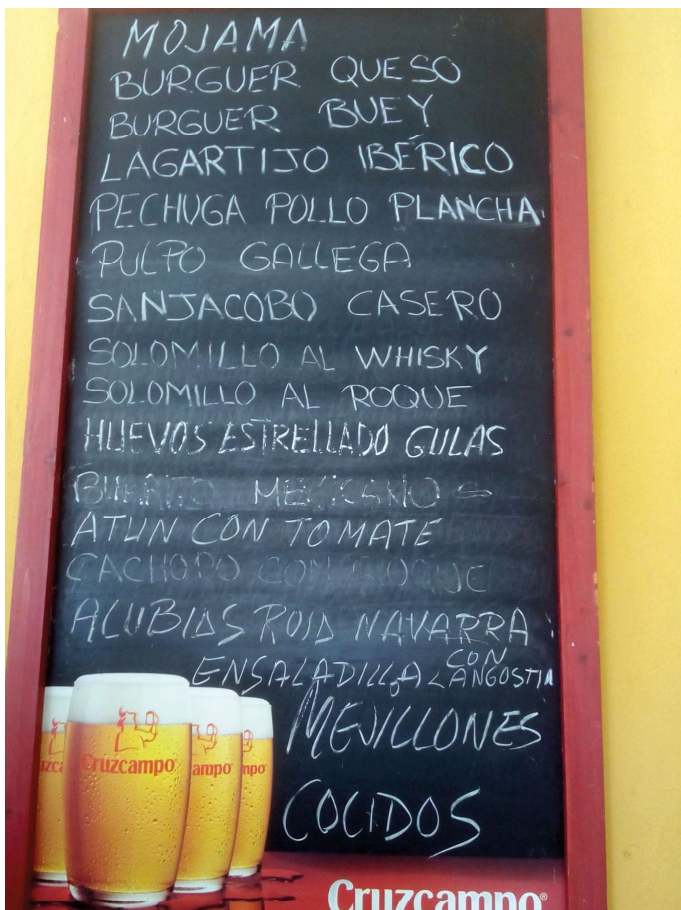 MOJAMA
BURGUER QUESO
BURGUER BUEY
LAGARTIJO IBÉRICO
PECHUGA POLLO PLANCHA
PULPO GALLEGA
SANJACOBO CASERO
SOLOMILLO AL WHISKY
SOLOMILLO AL ROQUE
HUEVOS ESTRELLADO GULAS
BURRITO MEXICANO
ATUN CON TOMATE
CACHOPO CON ROQUE
ALUBIAS ROJA NAVARRA
ENSALADILLA CON LANGOSTIN
MEJILLONES
COCIDOS
Cruzcampo
ampo
mpo
Cruzcampo